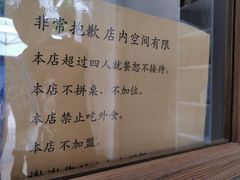 非常抱歉店内空间有限
本店超过四人就餐恕不接待。
本店不拼桌、不加位。
本店禁止吃外食。
本店不加盟。